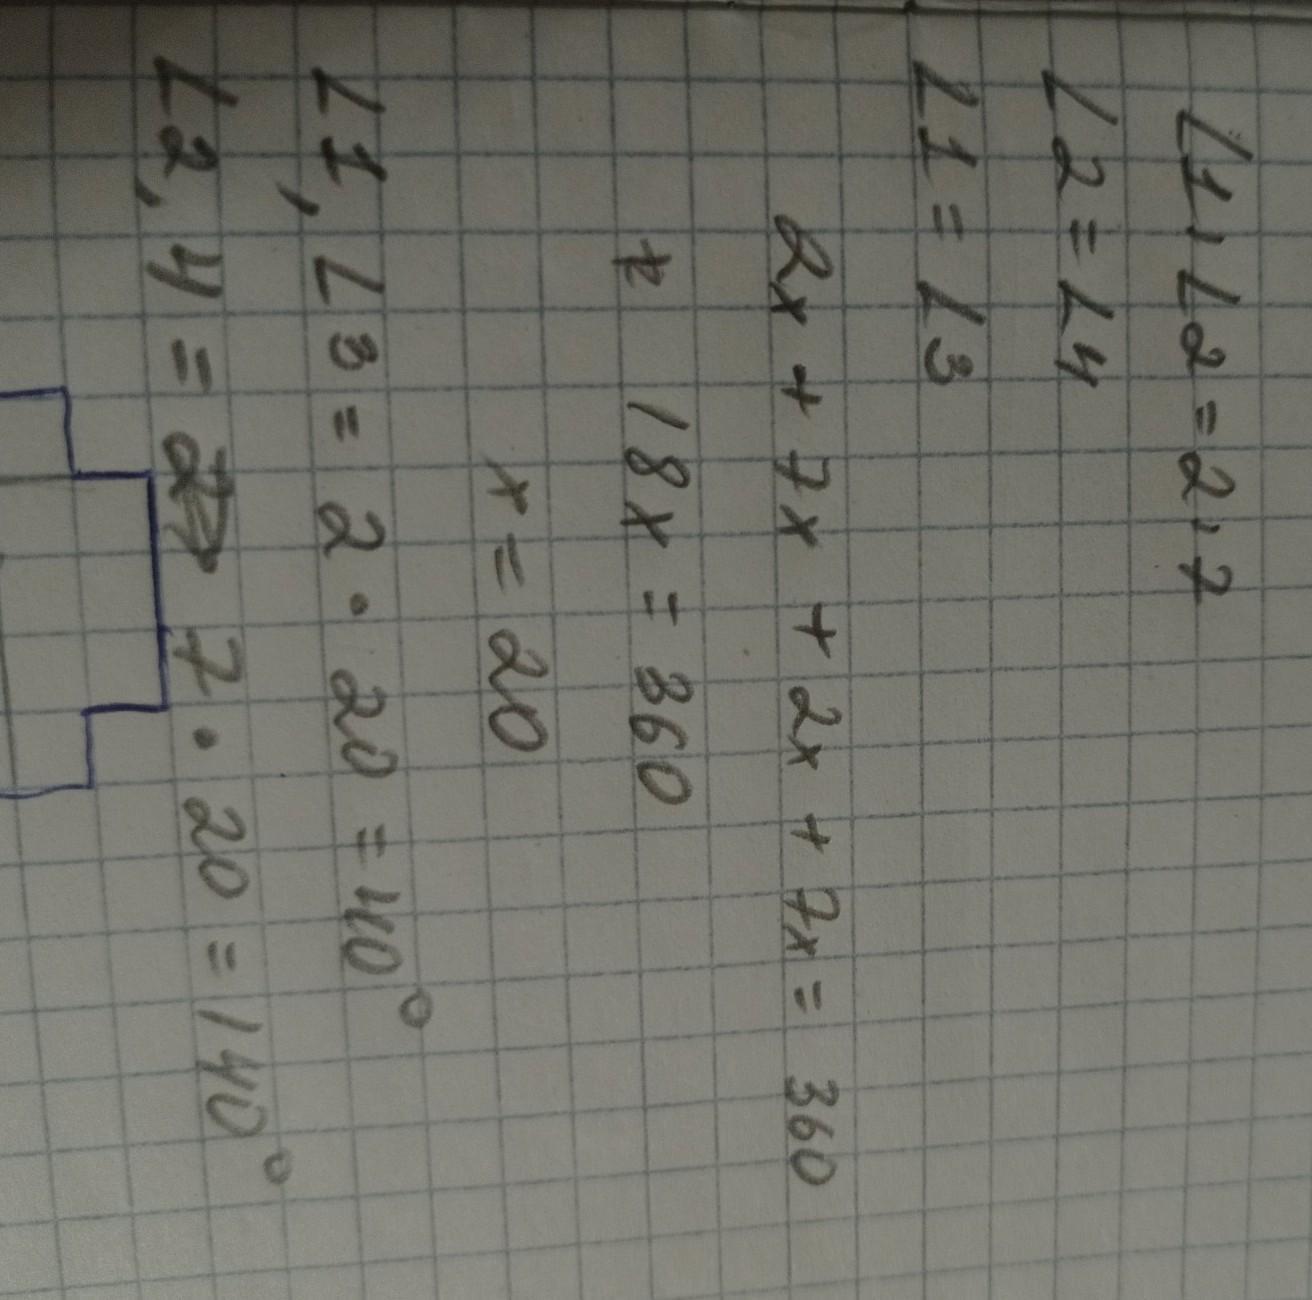 ∠1, ∠2 = 2, 7
∠2 = ∠4
∠1 = ∠3
2x + 7x + 2x + 7x = 360
18x = 360
x = 20
∠1, ∠3 = 2 · 20 = 40°
∠2, 4 = 7 · 20 = 140°